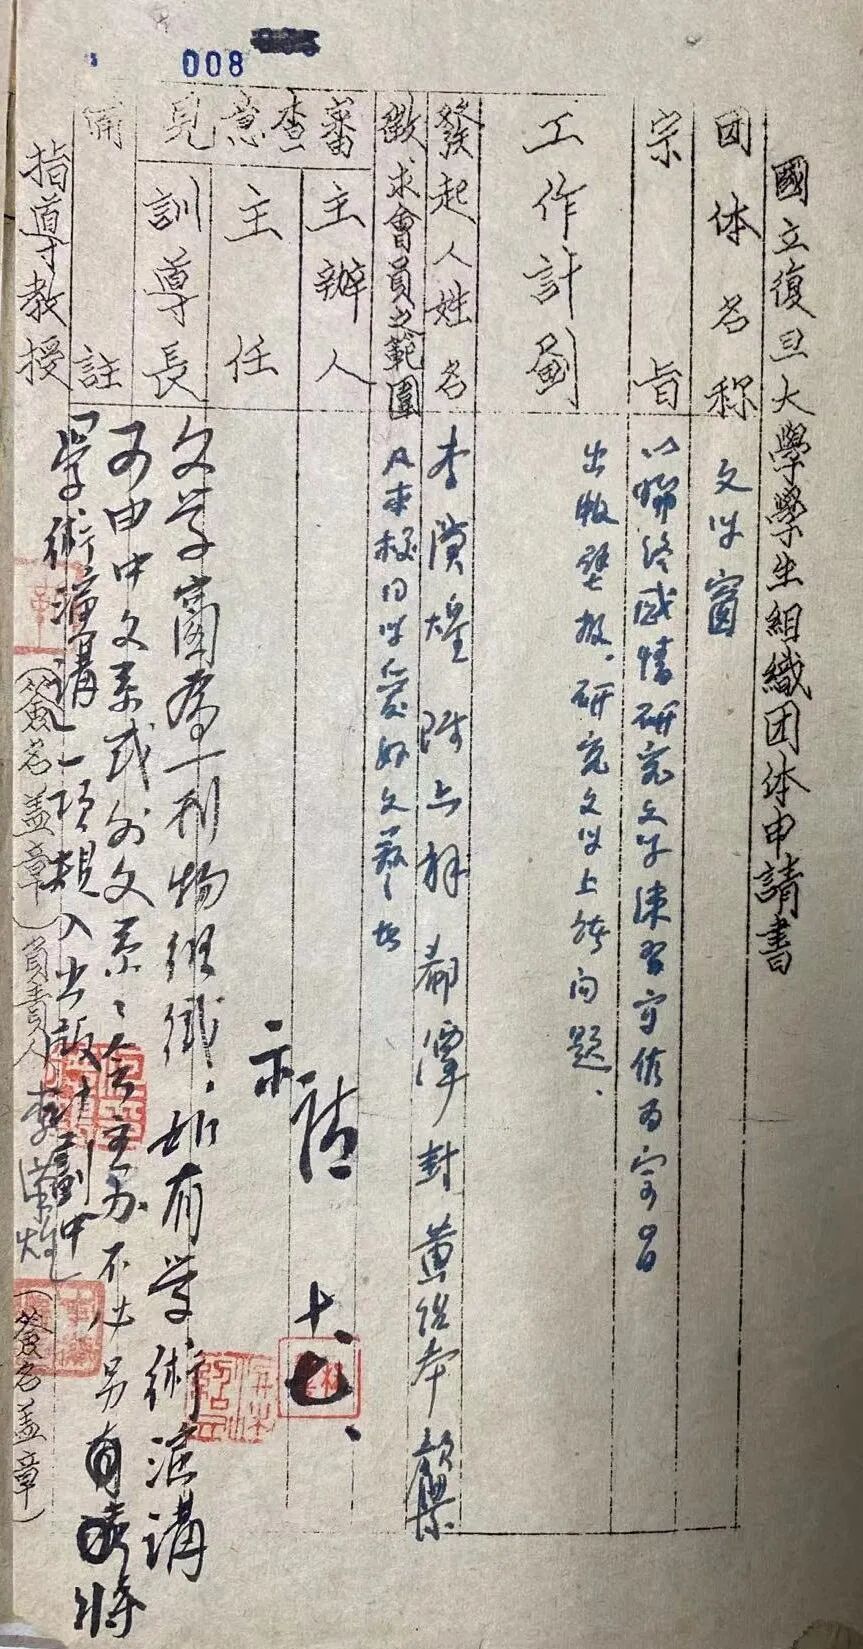 008
國立復旦大學學生組織团体申請書
团体名称 文学窗
宗旨 以聯络感情研究文学練習寫作为宗旨
工作計劃 出版壁报、研究文学上諸问題、
發起人姓名 李濱煌 封 黄 本
徵求會員之範圍 凡本校同学爱好文藝者
審查意見
主辦人
十、七、
主任
訓導長 文学窗為一刊物组織，如有学術演講
備註 可由中文系或外文系系会主办不必另有 将
「学術演講」一项規入出版計劃中
指導教授 （簽名盖章）負責人 李 煌（簽名盖章）